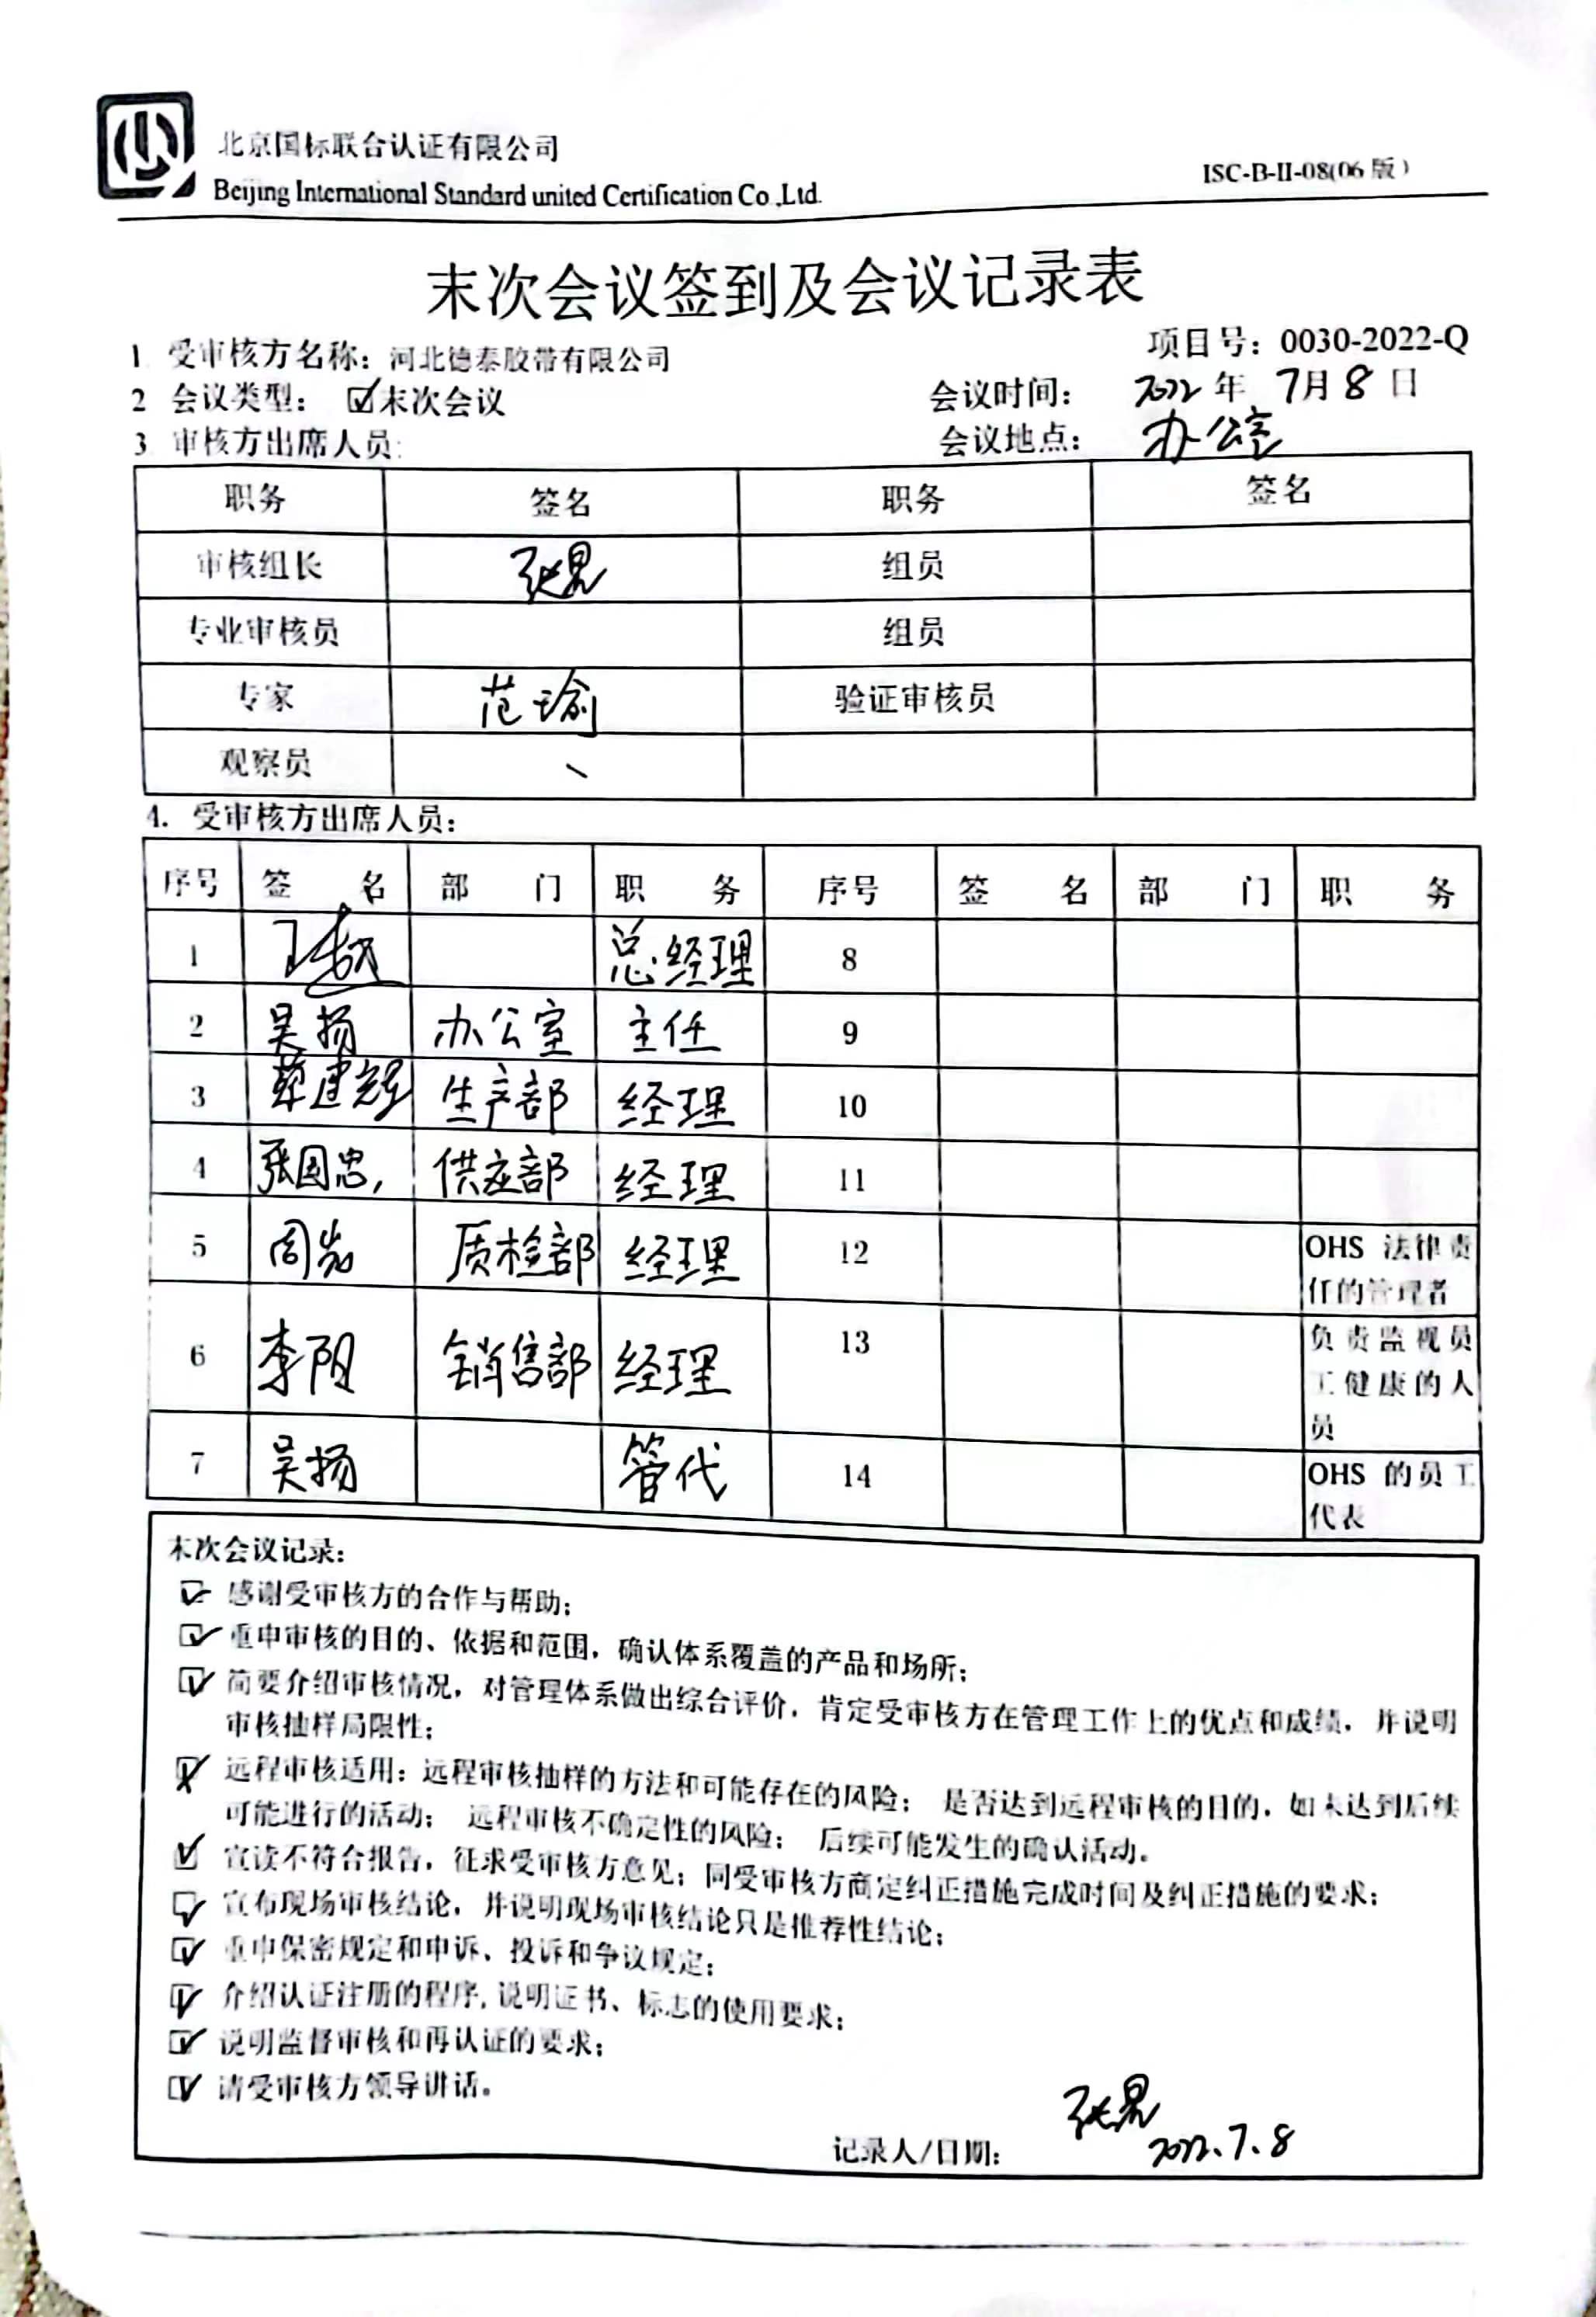 北京国标联合认证有限公司
Beijing International Standard united Certification Co.,Ltd.
ISC-B-II-08(06版)
末次会议签到及会议记录表
1 受审核方名称：河北德泰胶带有限公司 项目号：0030-2022-Q
2 会议类型：☑末次会议 会议时间：2022年 7月8日
3 审核方出席人员: 会议地点：办公室
职务 签名 职务 签名
审核组长 组员
专业审核员 组员
专家 范瑜 验证审核员
观察员 、
4. 受审核方出席人员：
序号 签 名 部 门 职 务 序号 签 名 部 门 职 务
1 总经理 8
2 吴扬 办公室 主任 9
3 生产部 经理 10
4 张国忠, 供应部 经理 11
5 质检部 经理 12 OHS 法律责
任的管理者
6 李阳 销售部 经理 13 负责监视员
工健康的人
员
7 吴扬 管代 14 OHS 的员工
代表
末次会议记录：
☑ 感谢受审核方的合作与帮助；
☑ 重申审核的目的、依据和范围，确认体系覆盖的产品和场所；
☑ 简要介绍审核情况，对管理体系做出综合评价，肯定受审核方在管理工作上的优点和成绩，并说明
审核抽样局限性；
远程审核适用：远程审核抽样的方法和可能存在的风险； 是否达到远程审核的目的，如未达到后续
可能进行的活动； 远程审核不确定性的风险； 后续可能发生的确认活动。
☑ 宣读不符合报告，征求受审核方意见；同受审核方商定纠正措施完成时间及纠正措施的要求；
☑ 宣布现场审核结论，并说明现场审核结论只是推荐性结论；
☑ 重申保密规定和申诉、投诉和争议规定；
☑ 介绍认证注册的程序,说明证书、标志的使用要求；
☑ 说明监督审核和再认证的要求；
☑ 请受审核方领导讲话。
记录人/日期： 2022.7.8